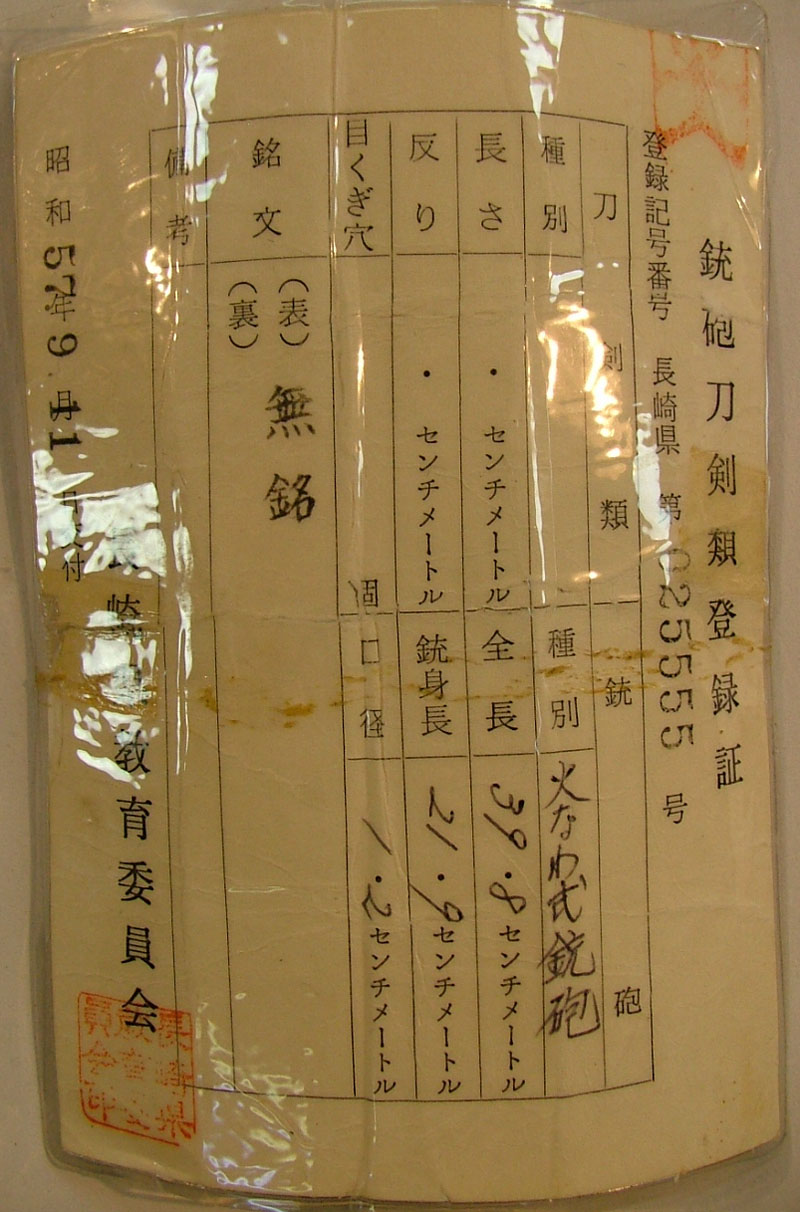 銃砲刀剣類登録証
登録記号番号 長崎県 第025555号
刀剣類
種別
長さ ・ センチメートル
反り ・ センチメートル
目くぎ穴 個
銃砲
種別 火なわ式銃砲
全長 39・8センチメートル
銃身長 21・9センチメートル
口径 1・2センチメートル
銘文 (表) 無銘
(裏)
備考
昭和57年9月11日交付
長崎県教育委員会
長崎県
教育委
員会印